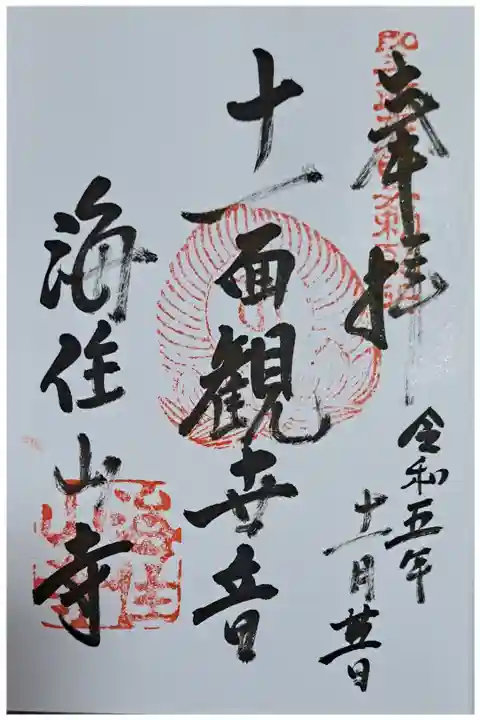 奉拝
令和五年
十一月廿日
十一面観世音
海住山寺